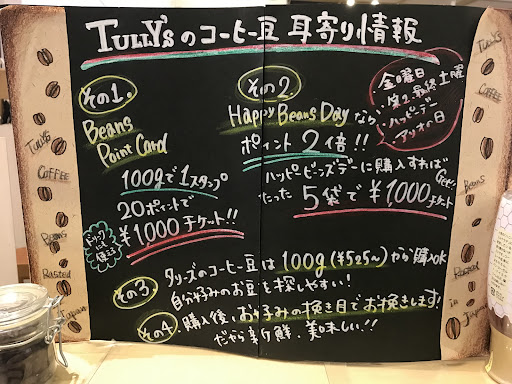 TULLY'Sのコーヒー豆 耳寄り情報
その1.
Beans
Point Card
100gで1スタンプ
20ポイントで
¥1,000チケット!!
ドリンク
にも
使えるよ
その2
Happy Beans Dayなら
ポイント2倍!!
・金曜日
・第2、最終土曜
・ハッピーデー
・アリオの日
ハッピービーンズデーに購入すれば
たった5袋で¥1,000チケットGet!!
その3
タリーズのコーヒー豆は100g(¥525~)から購入OK
自分好みのお豆を探しやすい!
その4.
購入後、お好みの挽き目でお挽きします!
だから新鮮、美味しい!!
TULLY'S
COFFEE
Beans
Roasted
in
Japan
TULLY'S
COFFEE
Beans
Roasted
in
Japan